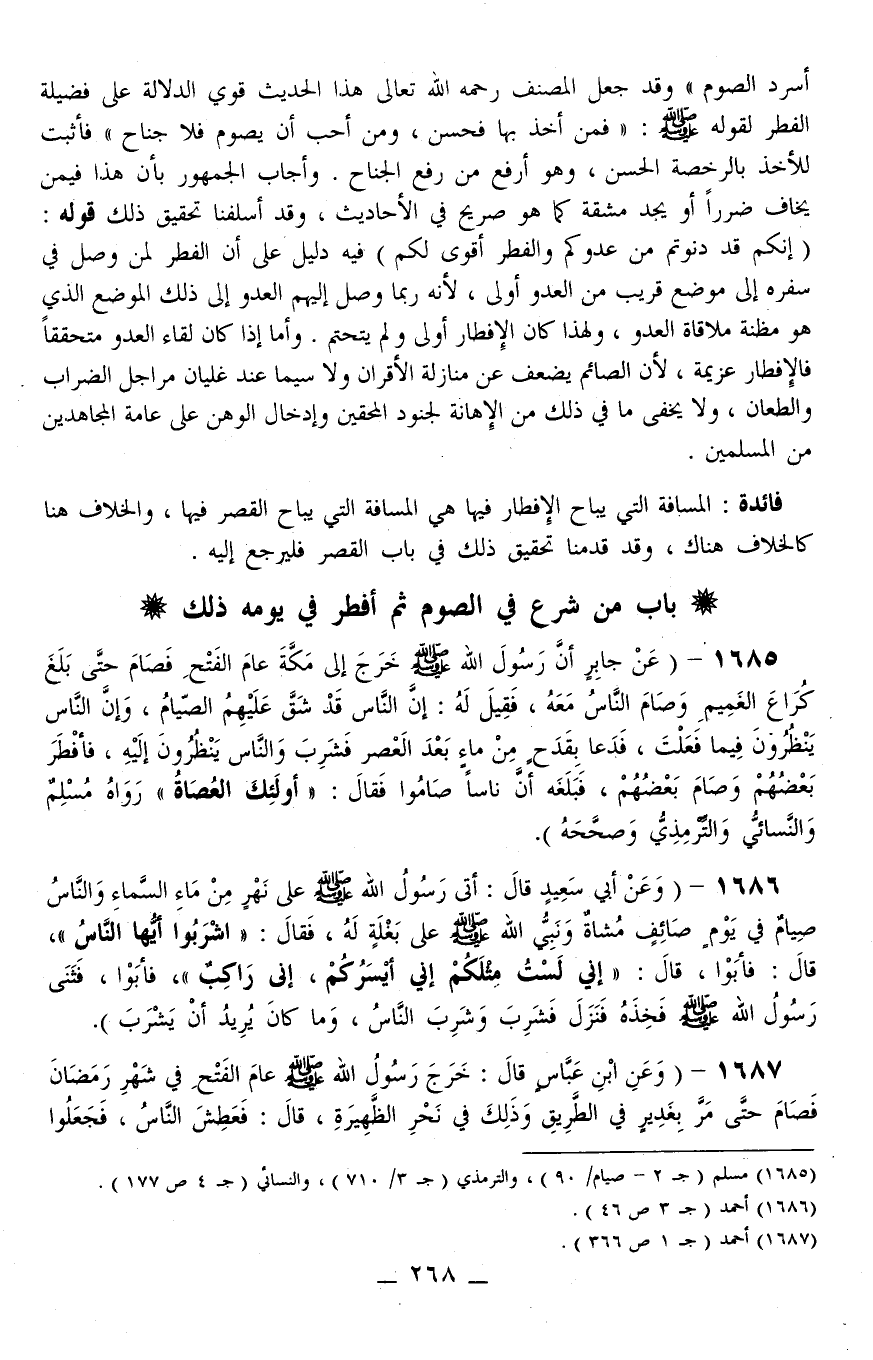 أسرد الصوم » وقد جعل المصنف رحمه الله تعالى هذا الحديث قوي الدلالة على فضيلة
الفطر لقوله ﷺ : « فمن أخذ بها فحسن ، ومن أحب أن يصوم فلا جناح » فأثبت
للأخذ بالرخصة الحسن ، وهو أرفع من رفع الجناح . وأجاب الجمهور بأن هذا فيمن
يخاف ضرراً أو يجد مشقة كما هو صريح في الأحاديث ، وقد أسلفنا تحقيق ذلك قوله :
( إنكم قد دنوتم من عدوكم والفطر أقوى لكم ) فيه دليل على أن الفطر لمن وصل في
سفره إلى موضع قريب من العدو أولى ، لأنه ربما وصل إليهم العدو إلى ذلك الموضع الذي
هو مظنة ملاقاة العدو ، ولهذا كان الإفطار أولى ولم يتحتم . وأما إذا كان لقاء العدو متحققاً
فالإفطار عزيمة ، لأن الصائم يضعف عن منازلة الأقران ولا سيما عند غليان مراجل الضراب
والطعان ، ولا يخفى ما في ذلك من الإهانة لجنود المحقين وإدخال الوهن على عامة المجاهدين
من المسلمين .
فائدة : المسافة التي يباح الإفطار فيها هي المسافة التي يباح القصر فيها ، والخلاف هنا
كالخلاف هناك ، وقد قدمنا تحقيق ذلك في باب القصر فليرجع إليه .
✹ باب من شرع في الصوم ثم أفطر في يومه ذلك ✹
١٦٨٥ – ( عَنْ جابِرٍ أنَّ رَسُولَ الله ﷺ خَرَجَ إلى مَكَّةَ عامَ الفَتْحِ فَصَامَ حتَّى بَلَغَ
كُرَاعَ الغَمِيمِ وَصَامَ النَّاسُ مَعَهُ ، فَقِيلَ لَهُ : إنَّ النَّاس قَدْ شَقَّ عَلَيْهِمُ الصّيامُ ، وَإنَّ النَّاس
يَنْظُرُونَ فِيما فَعَلْتَ ، فَدَعا بِقَدَحٍ مِنْ ماءٍ بَعْدَ الْعَصر فَشَرِبَ وَالنَّاس يَنْظُرُونَ إلَيْهِ ، فأفْطَرَ
بَعْضُهُمْ وَصَامَ بَعْضُهُمْ ، فَبَلَغَه أنَّ ناساً صَامُوا فَقالَ : « أولَئِكَ العُصَاةُ » رَوَاهُ مُسْلِمٌ
وَالنَّسائيُّ وَالتِّرْمِذِيُّ وَصحَّحَهُ ).
١٦٨٦ – ( وَعَنْ أبي سَعِيدٍ قالَ : أتى رَسُولُ الله ﷺ على نَهْرٍ مِنْ مَاءِ السَّماءِ وَالنَّاسُ
صِيامٌ في يَوْمٍ صَائِفٍ مُشاةٌ وَنَبِيُّ الله ﷺ على بَغْلَةٍ لَهُ ، فَقالَ : « اشْرَبُوا أيُّها النَّاسُ »،
قالَ : فأبَوْا ، قالَ : « إني لَسْتُ مِثْلَكُمْ إني أيْسَرُكُمْ ، إنى رَاكِبٌ »، فأبَوْا ، فَثَنَى
رَسُولُ الله ﷺ فَخِذَهُ فَنَزَلَ فَشَرِبَ وَشَرِبَ النَّاسُ ، وَما كانَ يُرِيدُ أنْ يَشْرَبَ ).
١٦٨٧ – ( وَعَنِ ابْنِ عَبَّاسٍ قالَ : خَرَجَ رَسُولُ الله ﷺ عامَ الفَتْحِ في شَهْرِ رَمَضَانَ
فَصَامَ حتَّى مَرَّ بِغَدِيرٍ في الطَّرِيقِ وَذَلِكَ في نَحْرِ الظَّهِيرَةِ ، قالَ : فَعَطِشَ النَّاسُ ، فَجَعَلُوا
(١٦٨٥) مسلم ( جـ ٢ – صيام/ ٩٠ ) ، والترمذي ( جـ ٣/ ٧١٠ ) ، والنسائي ( جـ ٤ ص ١٧٧ ) .
(١٦٨٦) أحمد ( جـ ٣ ص ٤٦ ) .
(١٦٨٧) أحمد ( جـ ١ ص ٣٦٦ ) .
— ٢٦٨ —